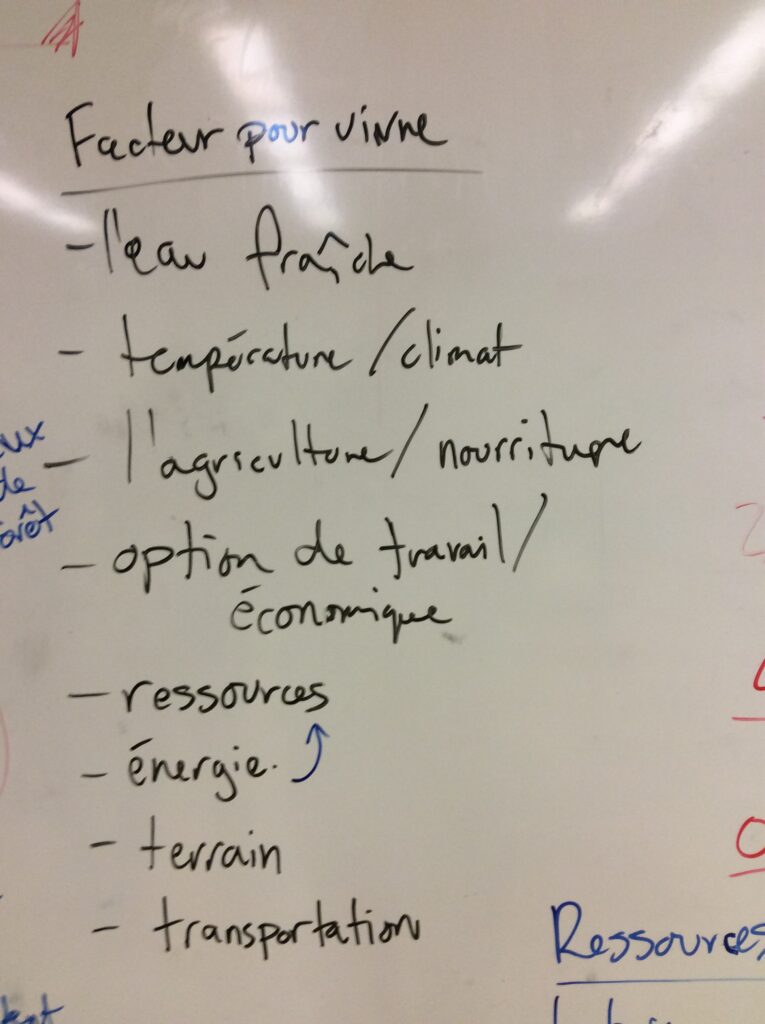 Facteur pour vivre
- l'eau fraîche
- température/climat
- l'agriculture/nourriture
- option de travail/
économique
- ressources
- énergie.
- terrain
- transportation
de
forêt
Ressources